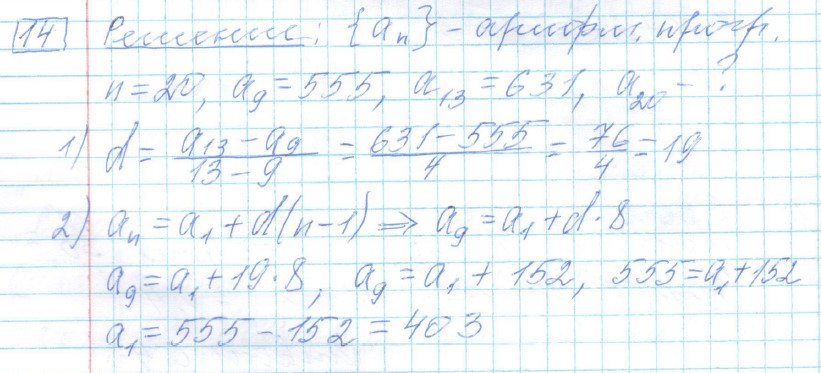 14 Решение: {aₙ} - арифм. прогр.
n=20, a₉=555, a₁₃=631, a₂₀ - ?
1) d = (a₁₃ - a₉)/(13 - 9) = (631 - 555)/4 = 76/4 = 19
2) aₙ = a₁ + d(n-1) ⇒ a₉ = a₁ + d·8
a₉ = a₁ + 19·8, a₉ = a₁ + 152, 555 = a₁ + 152
a₁ = 555 - 152 = 403